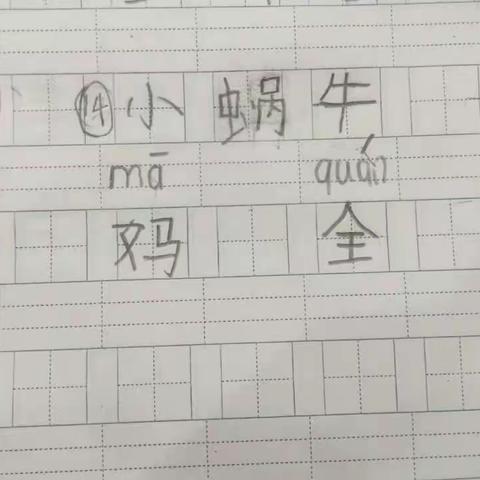 ⑭小蜗牛
mā quán
妈 全